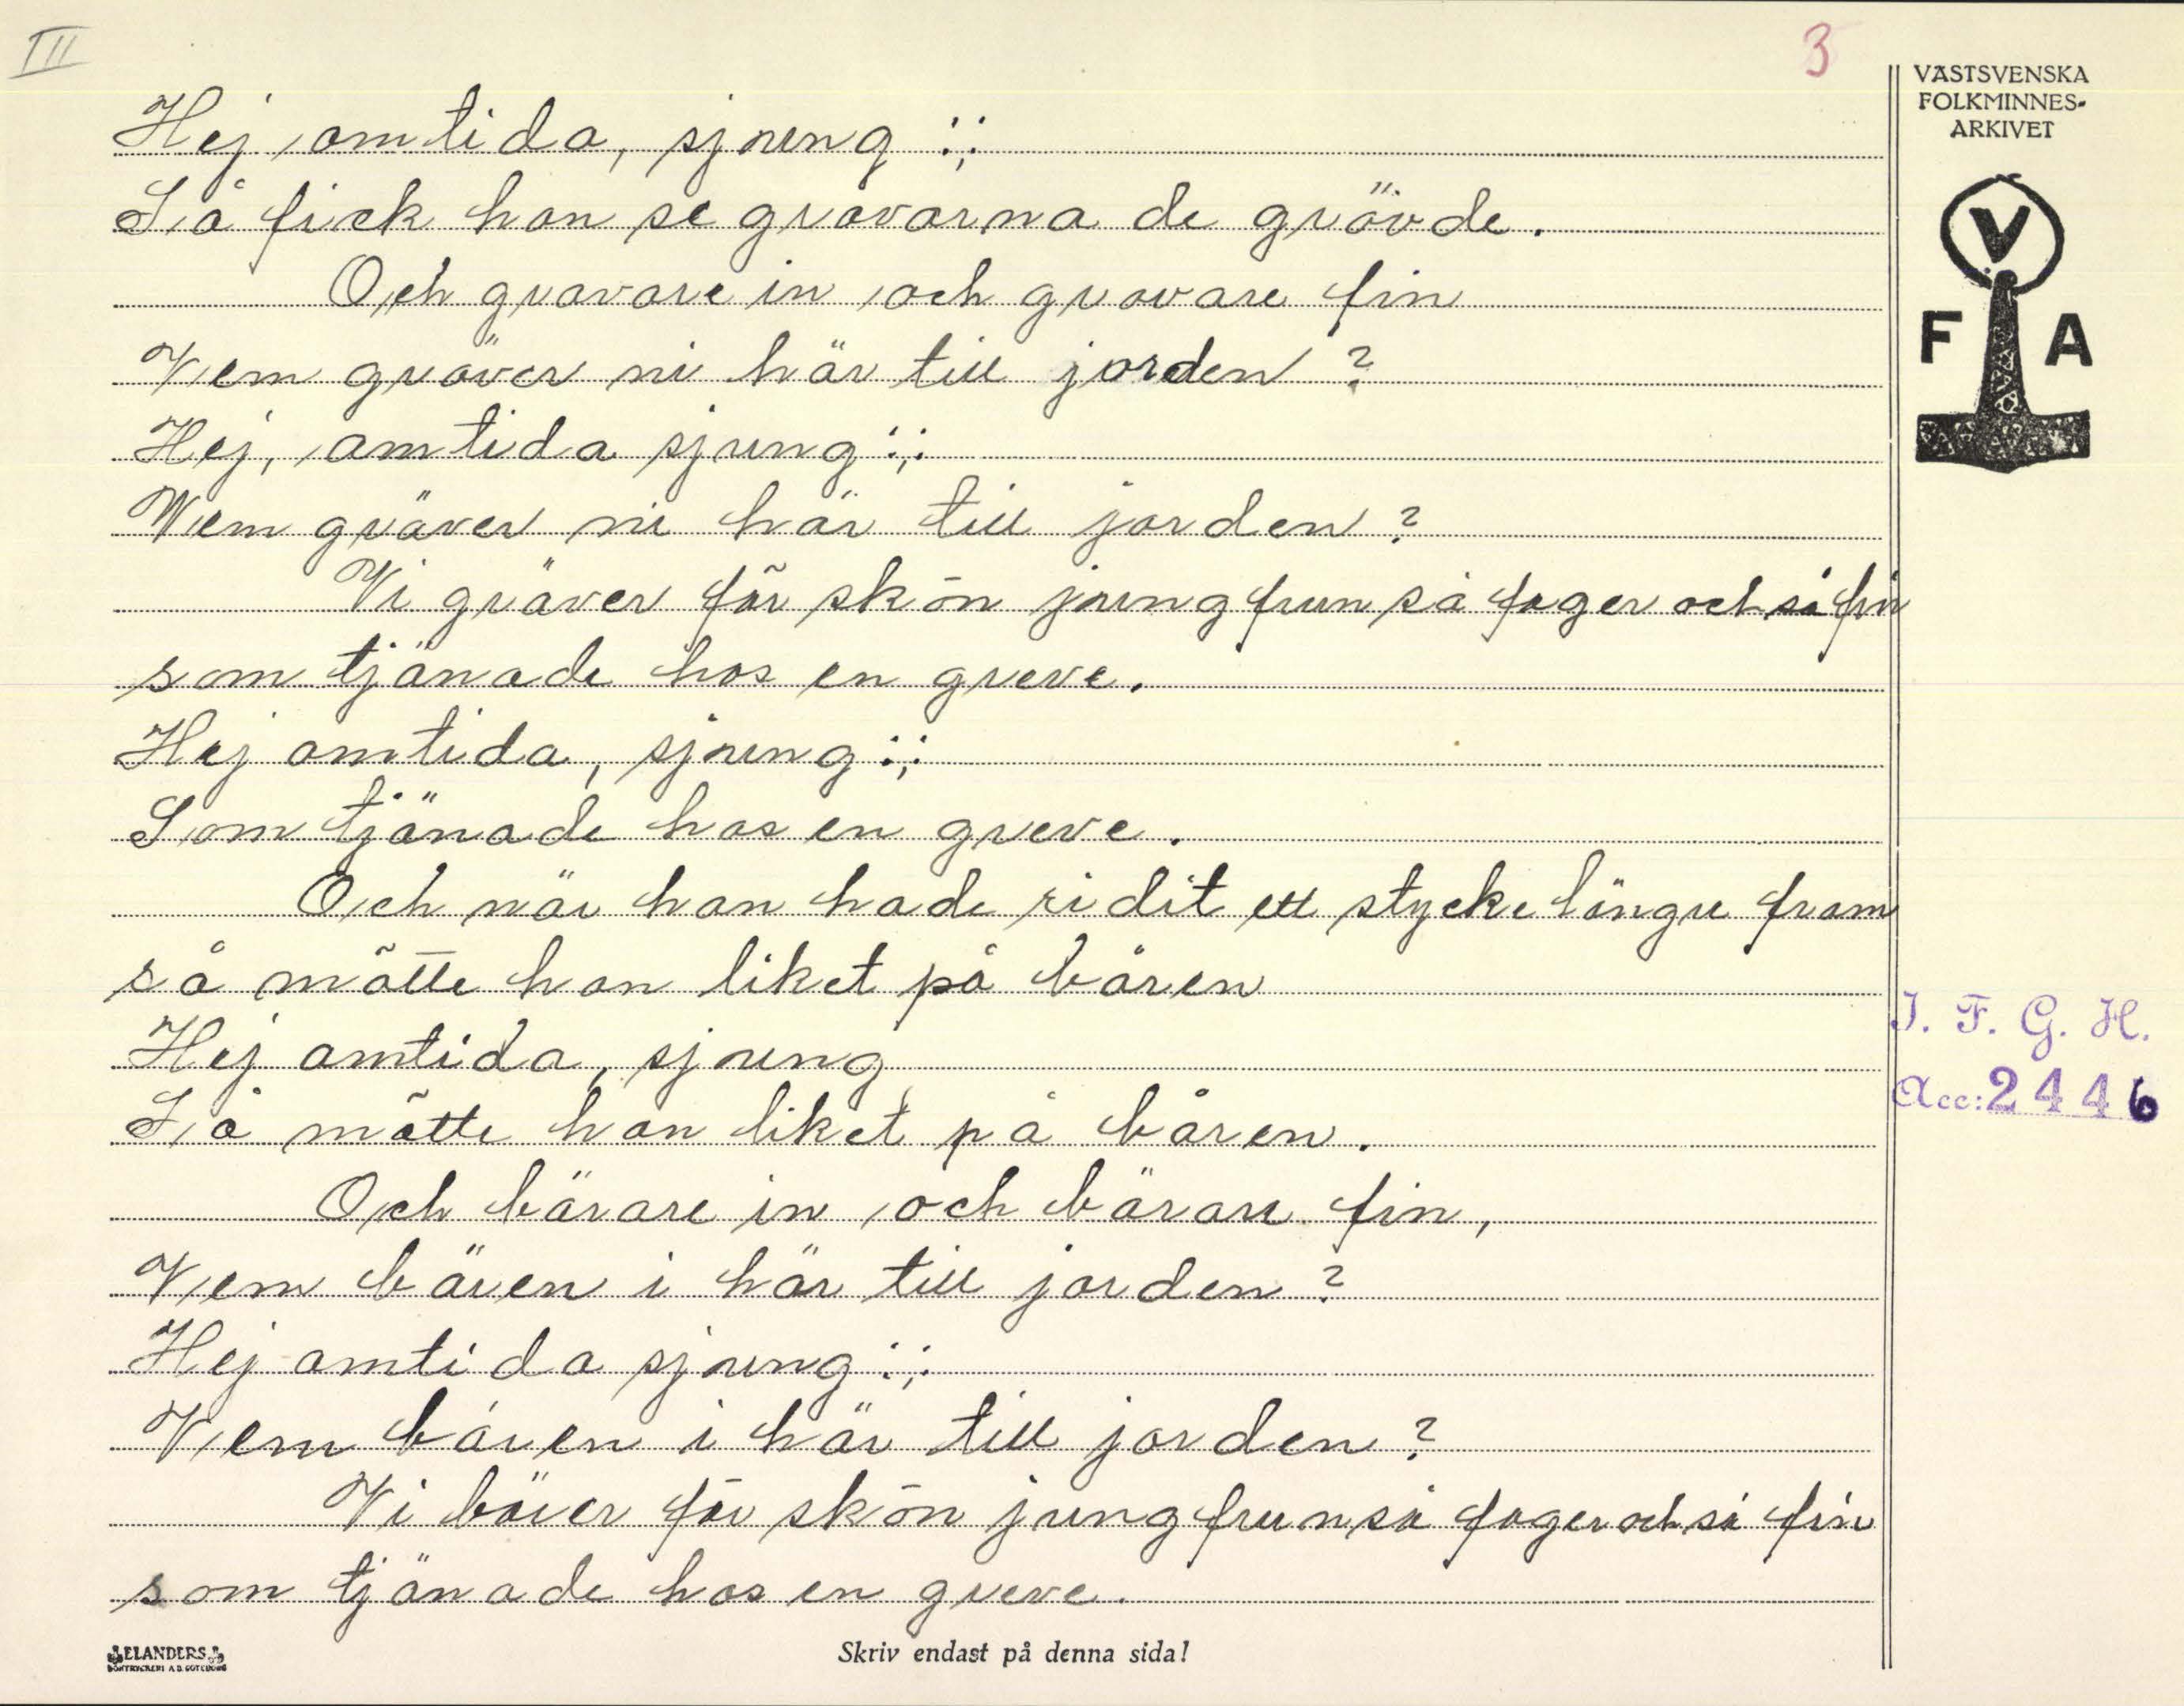 III
3
VÄSTSVENSKA
FOLKMINNES-
ARKIVET
V
F A
Hej, amtida, sjung :,:
Så fick han se gravarna de grövde.
Och gravare in, och gravare fin
Vem gräver ni här till jorden?
Hej, amtida sjung :,:
Vem gräver ni här till jorden?
Vi gräver för skön jungfrun så fager och så fin
som tjänade hos en greve.
Hej amtida, sjung :,:
Som tjänade hos en greve.
Och när han hade ridit ett stycke längre fram
så mötte han liket på båren
Hej amtida, sjung
Så mötte han liket på båren.
Och bärare in, och bärare fin,
Vem bären i här till jorden?
Hej amtida sjung :,:
Vem bären i här till jorden?
Vi bärer för skön jungfrun så fager och så fin
som tjänade hos en greve.
I. F. G. H.
Acc: 2446
ELANDERS
BOKTRYCKERI A.B. GÖTEBORG
Skriv endast på denna sida!